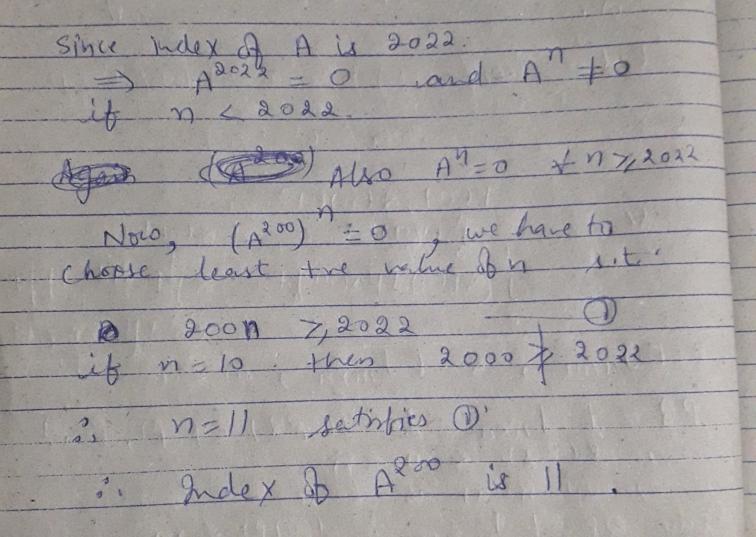 Since index of A is 2022.
⇒ A²⁰²² = 0 and Aⁿ ≠ 0
if n < 2022.
Also Aⁿ = 0 ∀ n ≥ 2022
Now, (A²⁰⁰)ⁿ = 0, we have to
choose least +ve value of n s.t.
200n ≥ 2022 —— ①
if n = 10 then 2000 ≱ 2022
∴ n = 11 satisfies ①
∴ Index of A²⁰⁰ is 11.